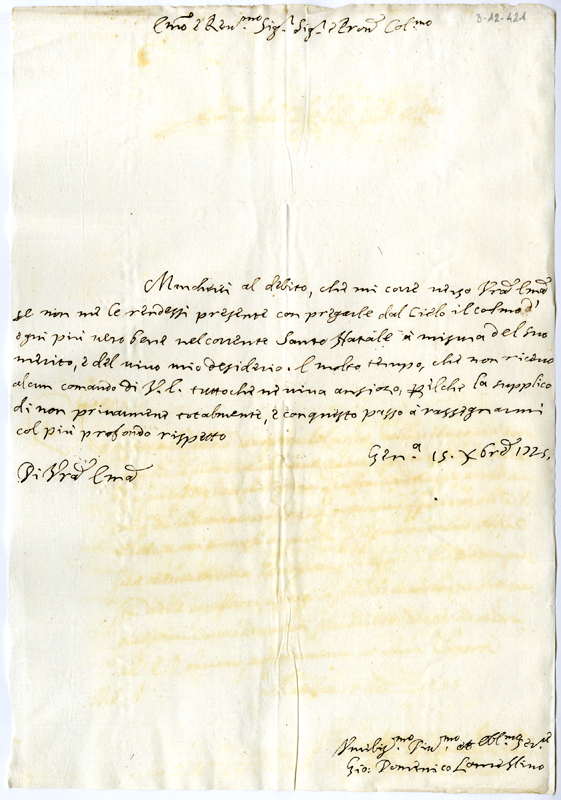 B-12-421
Emo e Revmo Sigr Sigr e Pron Colmo
Mancherei al debito, che mi corre verso Vra Ema
se non me le rendessi presente con pregarle dal Cielo il colmo d'
ogni più vero bene nel corrente Santo Natale a misura del suo
merito, e del vivo mio desiderio. È molto tempo, che non ricevo
alcun comando di V. E. tuttoche ne viva ansioso, Perilche la supplico
di non privarmene totalmente, e con questo passo a rassegnarmi
col più profondo rispetto
Gena 15. Xbre 1725.
Di Vra Ema
Umiligmo Divmo et Obligmo Serre
Gio: Domenico Lomellino